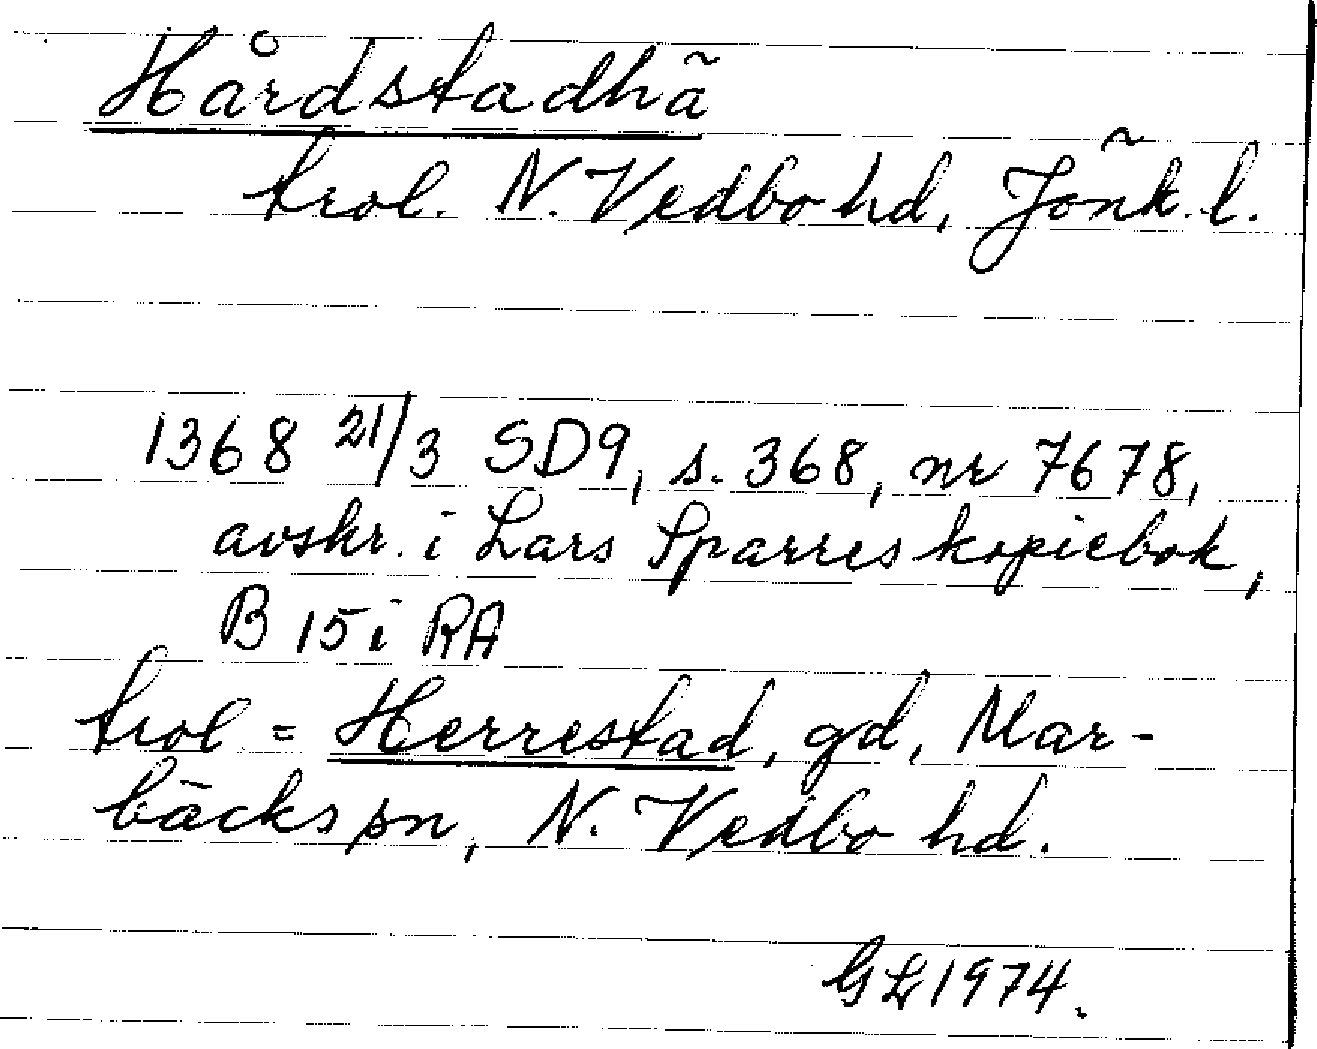 Hårdstadhä
trol. N. Vedbo hd, Jönk. l.
1368 21/3 SD9, s. 368, nr 7678,
avskr. i Lars Sparres kopiebok,
B 15 i RA
trol = Herrestad, gd, Mar-
bäcks sn, N. Vedbo hd.
GL 1974.